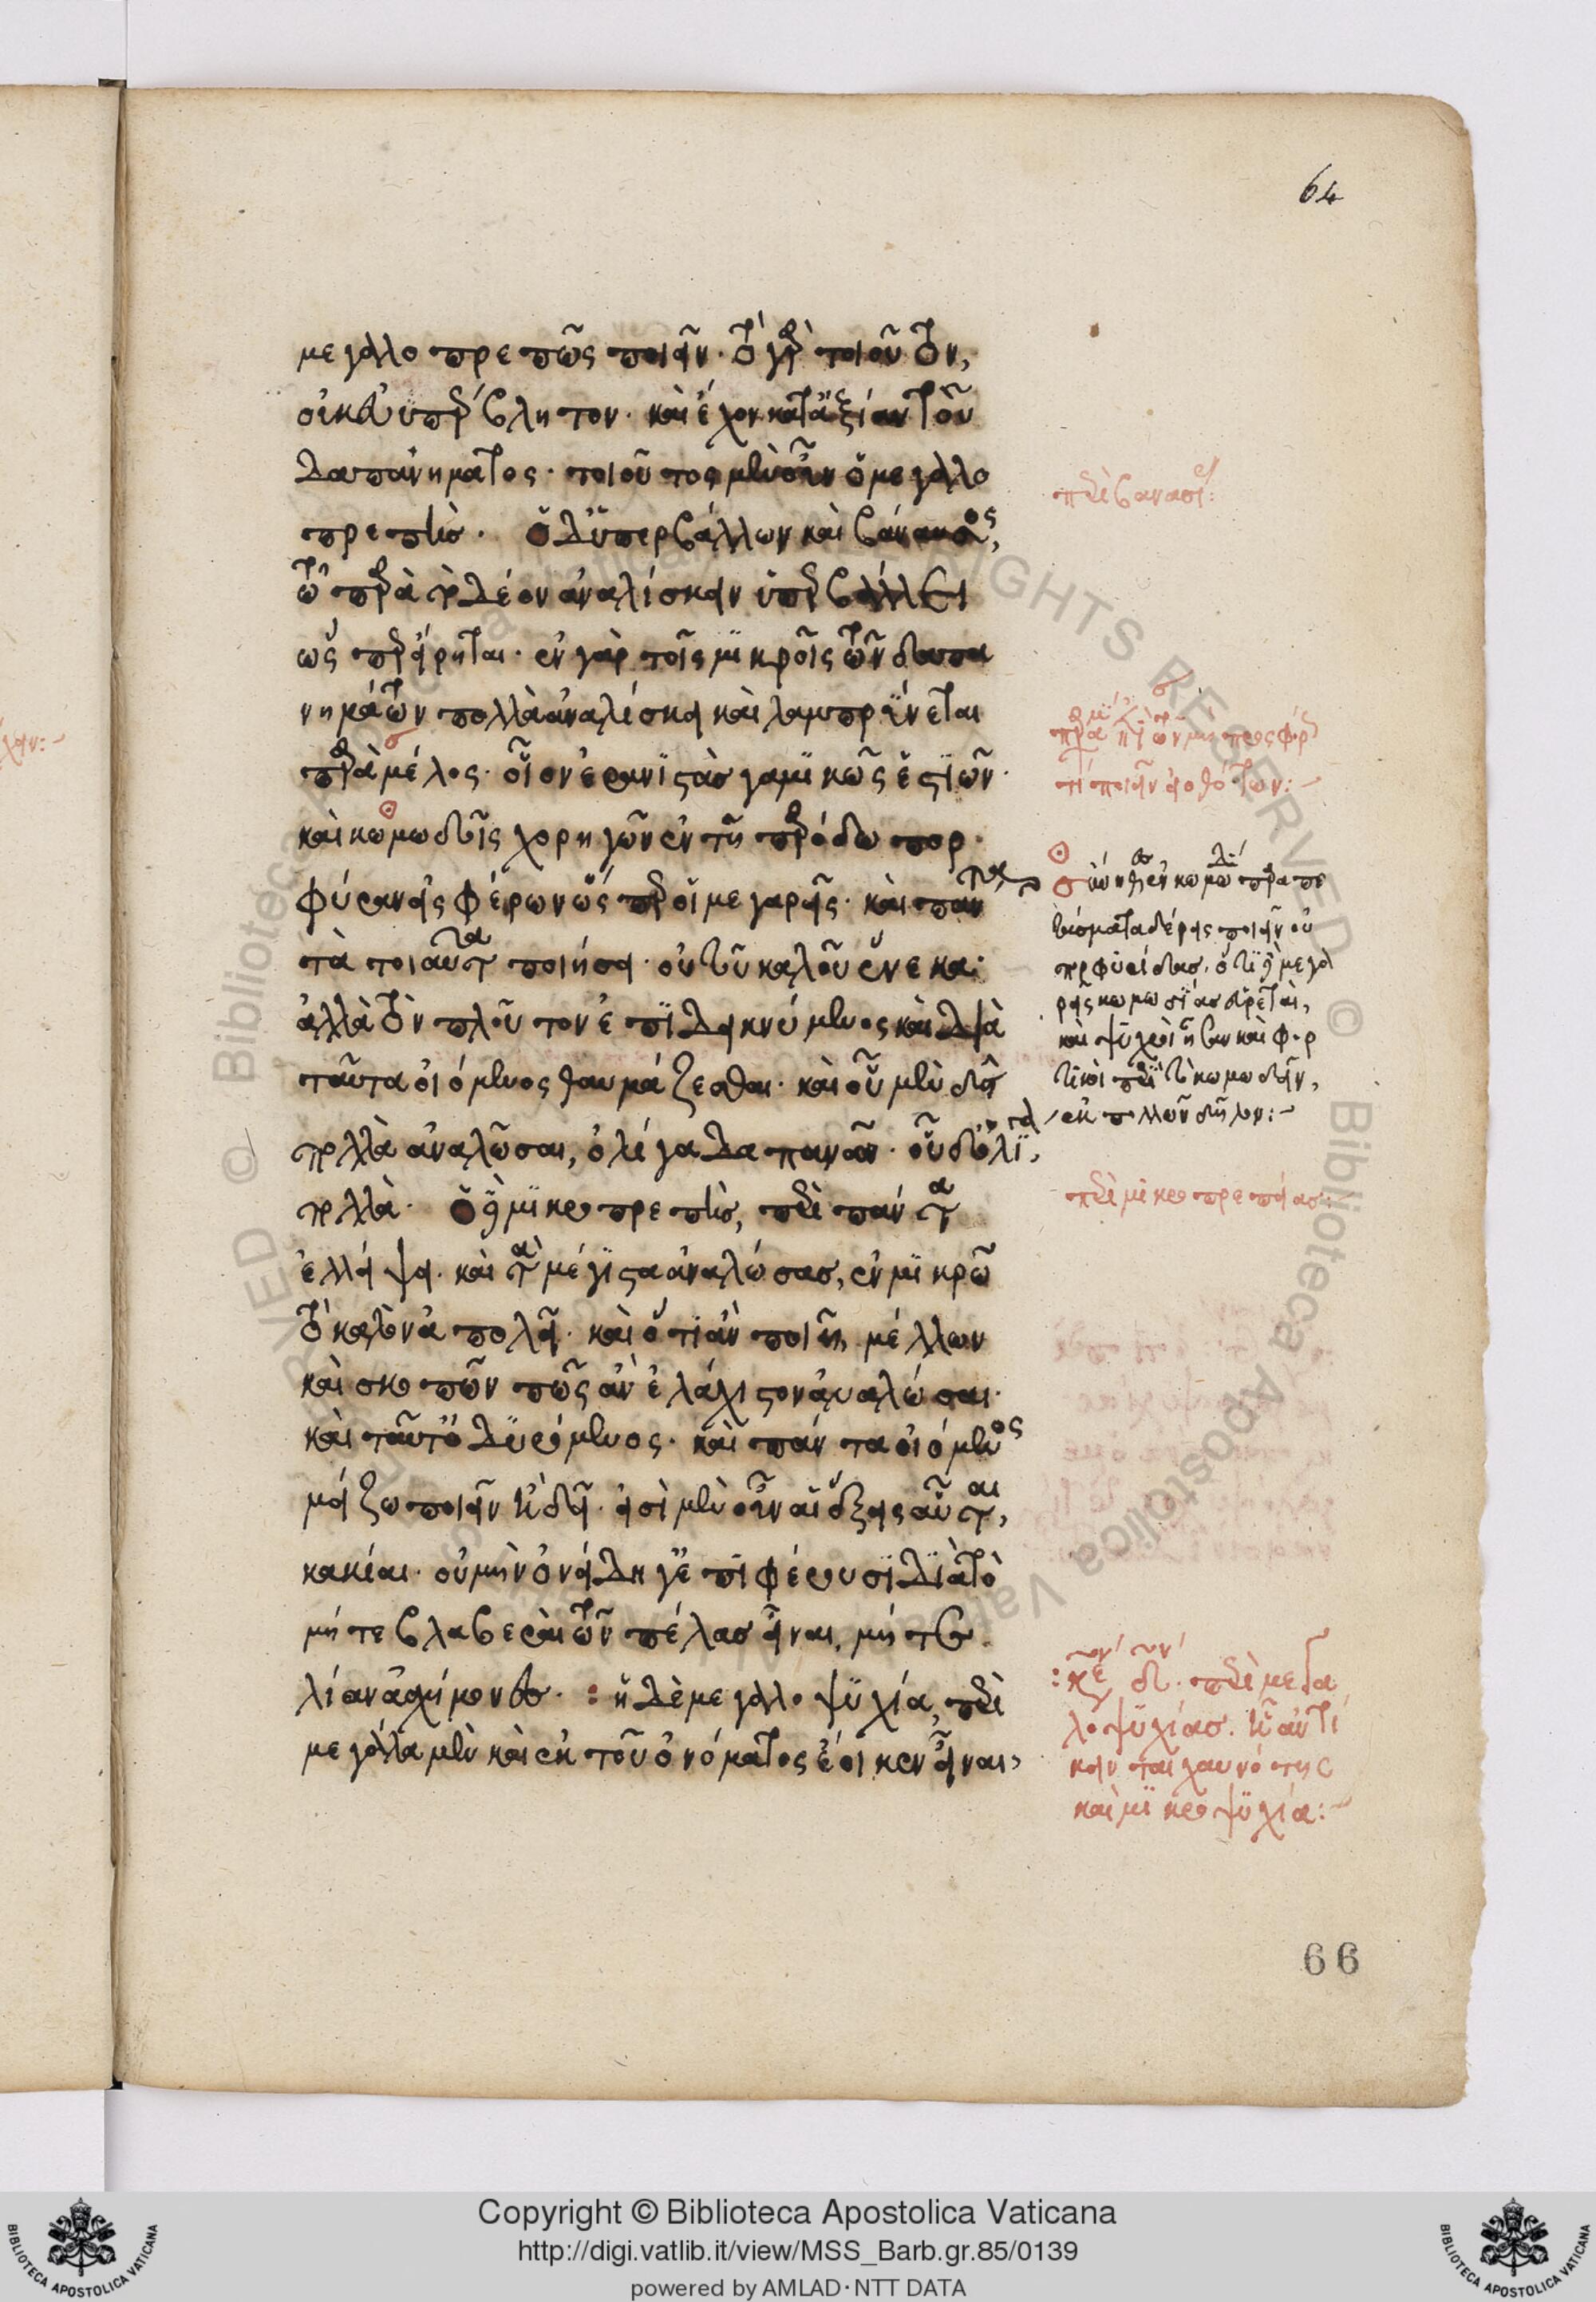 64
μεγαλοπρεπῶς ποιεῖν· τὸ γὰρ τοιοῦτον,
οὐκ εὐυπέρβλητον· καὶ ἔχον κατ' ἀξίαν τοῦ
δαπανήματος· τοιοῦτος μὲν οὖν ὁ μεγαλο
πρεπής. ὁ δ' ὑπερβάλλων καὶ βάναυσος,
τῷ παρὰ τὸ δέον ἀναλίσκειν ὑπερβάλλει
ὥσπερ εἴρηται· ἐν γὰρ τοῖς μικροῖς τῶν δαπα
νημάτων πολλὰ ἀναλίσκει καὶ λαμπρύνεται
παρὰ μέλος· οἷον ἐρανιστὰς γαμικῶς ἑστιῶν·
καὶ κωμωδοῖς χορηγῶν ἐν τῇ παρόδω πορ
φύραν εἰσφέρων ὥσπερ οἱ μεγαρεῖς· καὶ πάντα
τὰ τοιαῦτα ποιήσει· οὐ τοῦ καλοῦ ἕνεκα·
ἀλλὰ τὸν πλοῦτον ἐπιδεικνύμενος καὶ διὰ
ταῦτα οἰόμενος θαυμάζεσθαι· καὶ οὗ μὲν δεῖ
πολλὰ ἀναλῶσαι, ὀλίγα δαπανῶν· οὗ δ' ὀλίγα,
πολλὰ· ὁ δὲ μικροπρεπὴς, περὶ πάντα
ἐλλείψει· καὶ τὰ μέγιστα ἀναλώσας, ἐν μικρῶ
τὸ καλὸν ἀπολεῖ· καὶ ὅτι ἂν ποιῇ, μέλλων
καὶ σκοπῶν πῶς ἂν ἐλάχιστον ἀναλώσαι·
καὶ ταῦτ' ὀδυρόμενος· καὶ πάντα οἰόμενος
μείζω ποιεῖν ἢ δεῖ· εἰσὶ μὲν οὖν αἱ ἕξεις αὗται,
κακίαι· οὐ μὴν ὀνείδη γ' ἐπιφέρουσι διὰ τὸ
μήτε βλαβεραὶ τῶν πέλας εἶναι, μήτε
λίαν ἀσχήμονες· : ἡ δὲ μεγαλοψυχία, περὶ
μεγάλα μὲν καὶ ἐκ τοῦ ὀνόματος ἔοικεν εἶναι,
περὶ βαναυσί:
σύνηθες ἐν κωμω παραπε
τάσματα δέρεις ποιεῖν οὐ
πορφυρίδας· ὅτι δὲ μεγα
ρεῖς κωμω
καὶ ψυχροὶ ἦσαν καὶ φορ
τικοὶ περὶ τὸ κωμωδεῖν,
ἐκ πολλῶν δῆλον:
περὶ μικροπρεπείας:
περὶ μεγα
λοψυχίας· ᾗ ἀντί
κειται χαυνότης
καὶ μικροψυχία:
66
Copyright © Biblioteca Apostolica Vaticana
http://digi.vatlib.it/view/MSS_Barb.gr.85/0139
powered by AMLAD·NTT DATA
BIBLIOTECA APOSTOLICA VATICANA
BIBLIOTECA APOSTOLICA VATICANA